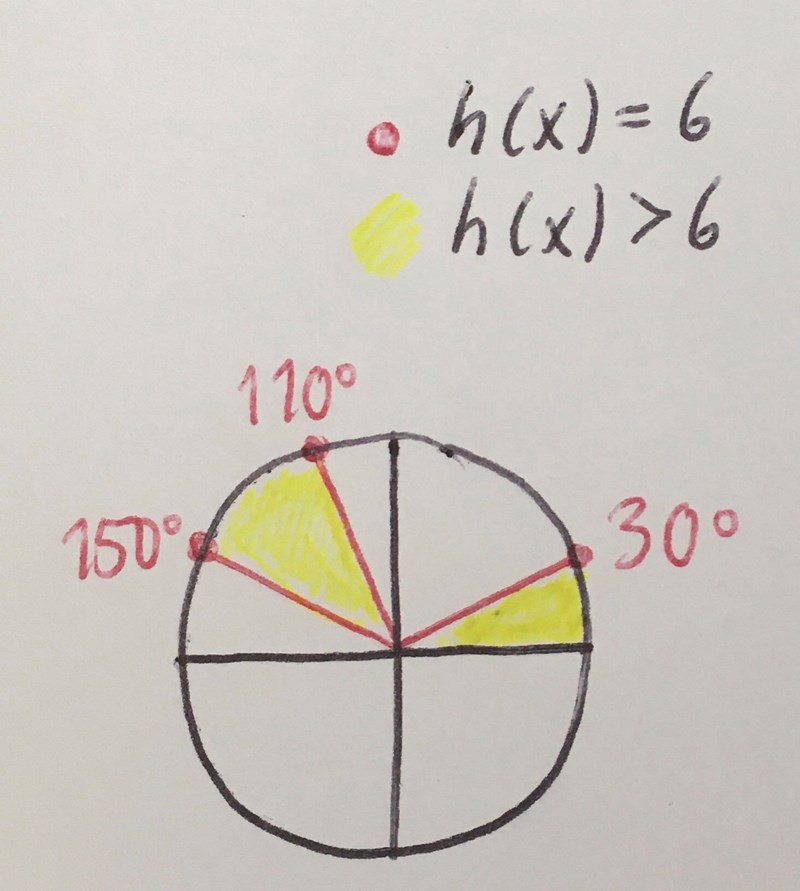 h(x) = 6
h(x) > 6
110°
150°
30°